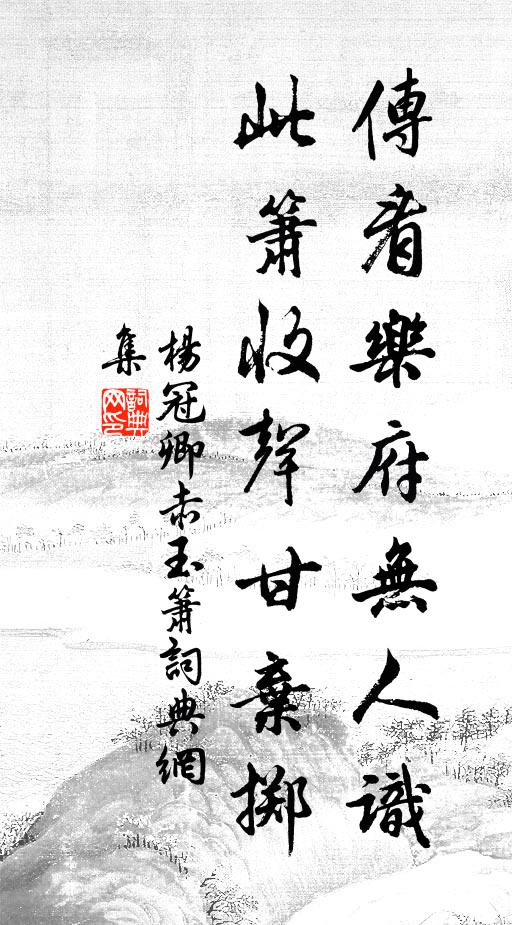 傳看樂府無人識
此簫收聲甘棄擲
楊冠卿赤玉簫詞典網
集
詞典網印